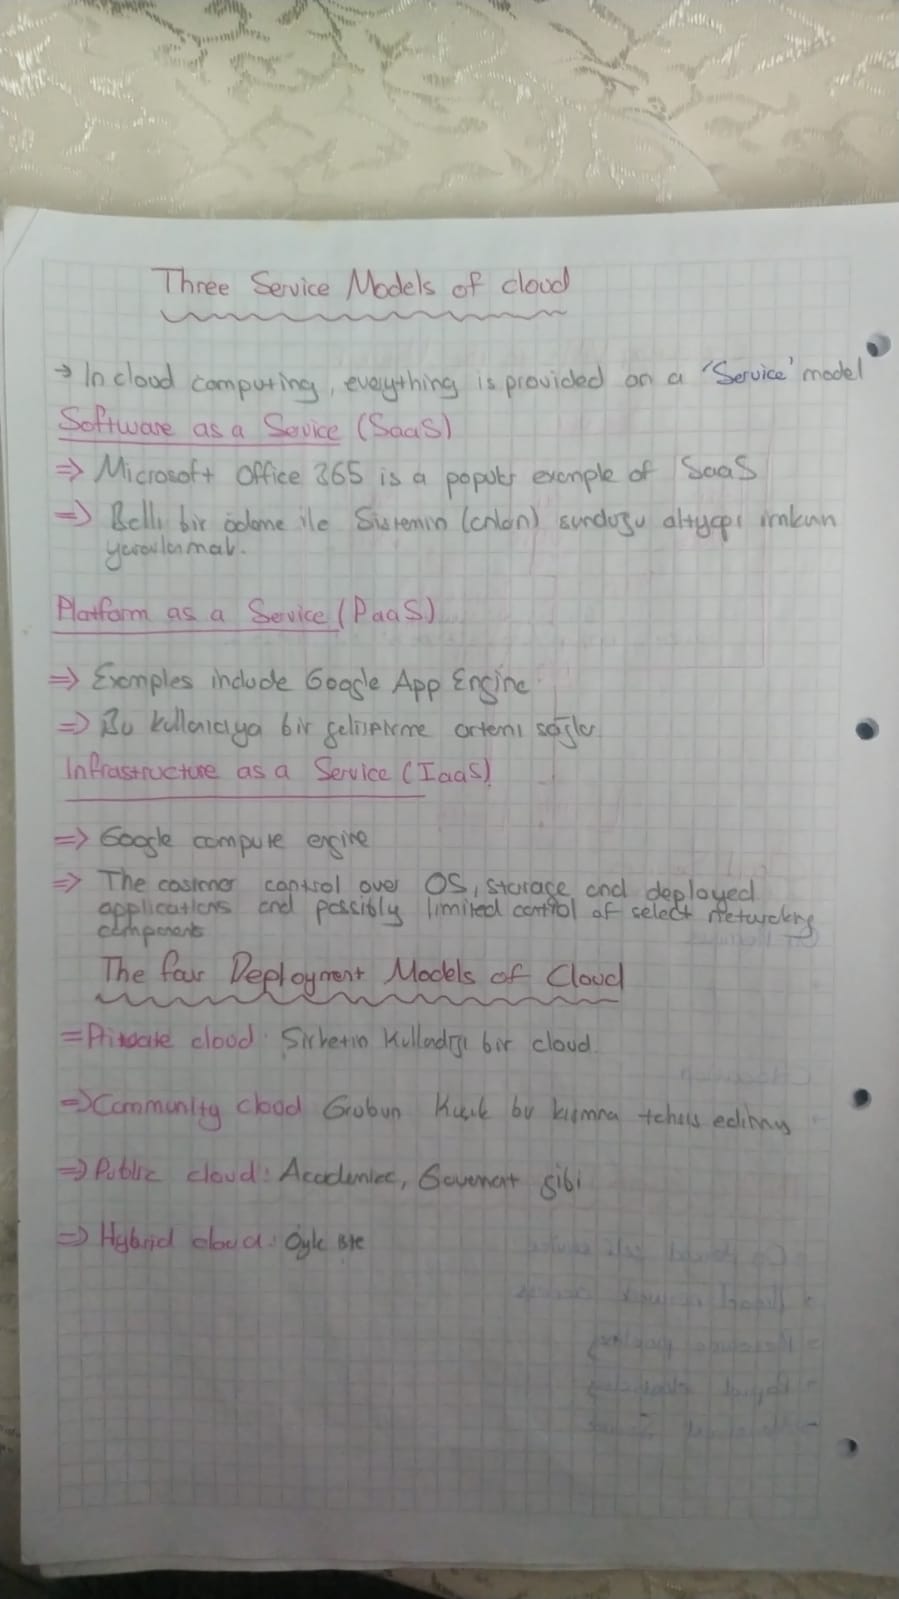 Three Service Models of cloud
→ In cloud computing, everything is provided on a 'Service' model
Software as a Service (SaaS)
⇒ Microsoft Office 365 is a popular example of SaaS
⇒ Belli bir ödeme ile Sistemin sunduğu altyapı imkanın
yararlanmak.
Platform as a Service (PaaS)
⇒ Examples include Google App Engine
⇒ Bu kullanıcıya bir geliştirme ortamı sağlar
Infrastructure as a Service (IaaS)
⇒ Google compute engine
⇒ The costomer control over OS, storage and deployed
applications and possibly limited control of select networking
components
The four Deployment Models of Cloud
= Private cloud: Şirketin Kullandığı bir cloud.
⇒ Community cloud Grubun bu kısmına edilmiş
⇒ Public cloud: Academic, Goverment gibi
⇒ Hybrid cloud: Öyle işte